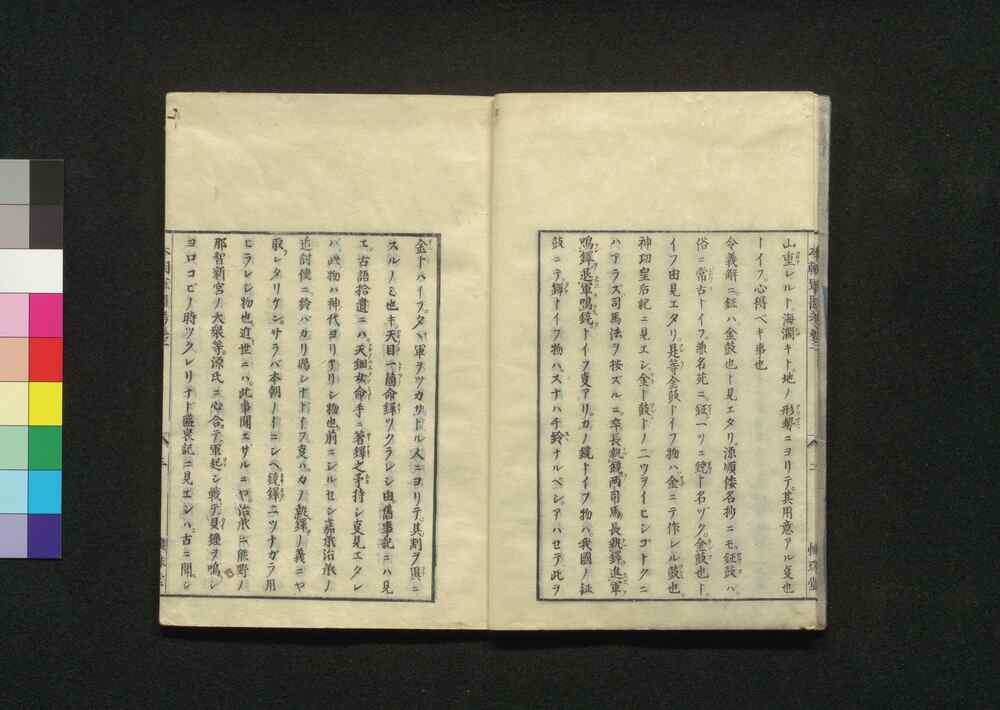 山重レルト海濶キト地ノ形勢ニヨリテ其用意アル夏也
トイフ心得ベキ事也
令義解ニ鉦ハ金鼓也ト見エタリ源順倭名抄ニモ鉦鼓ハ
俗ニ常古トイフ兼名苑ニ鉦一ツニ鐃ト名ヅク金鼓也ト
イフ由見エタリ是等金鼓トイフ物ハ金ニテ作レル鼓也
神功皇后紀ニ見エシ金ト鼓トノ二ツヲイヒシゴトクニ
ハアラズ司馬法ヲ按ズルニ卒長執鐃両司馬長執鐸進軍
鳴鐸退軍鳴鐃トイフ夏アリカノ鐃トイフ物ハ我國ノ鉦
鼓ニテ鐸トイフ物ハスナハチ鈴ナルベシアハセテ此ヲ
金トハイフタヾ軍ヲツカサドル人ニヨリテ其制ヲ異ニ
スルノミ也キ天目一箇命鐸ツクラレシ由舊事記ニハ見
エ古語拾遺ニハ天鈿女命手ニ著鐸之矛持シ夏見エタレ
バ此物ハ神代ヨリサリシ物也前ニシルセシ嘉承治承ノ
追討使ニ鈴バカリ賜シナドイフ夏ハカノ執鐸ノ義ニヤ
取レタリケンサラバ本朝ノイニシヘ鐃鐸二ツナガラ用
ヒラレシ物也近世ニハ此事聞エザルニヤ治承ニ熊野ノ
那智新宮ノ大衆等源氏ニ心合テ軍起シ戦テ貝鐘ヲ鳴シ
ヨロコビノ時ツクレリナド盛衰記ニ見エシハ古ニ聞シ